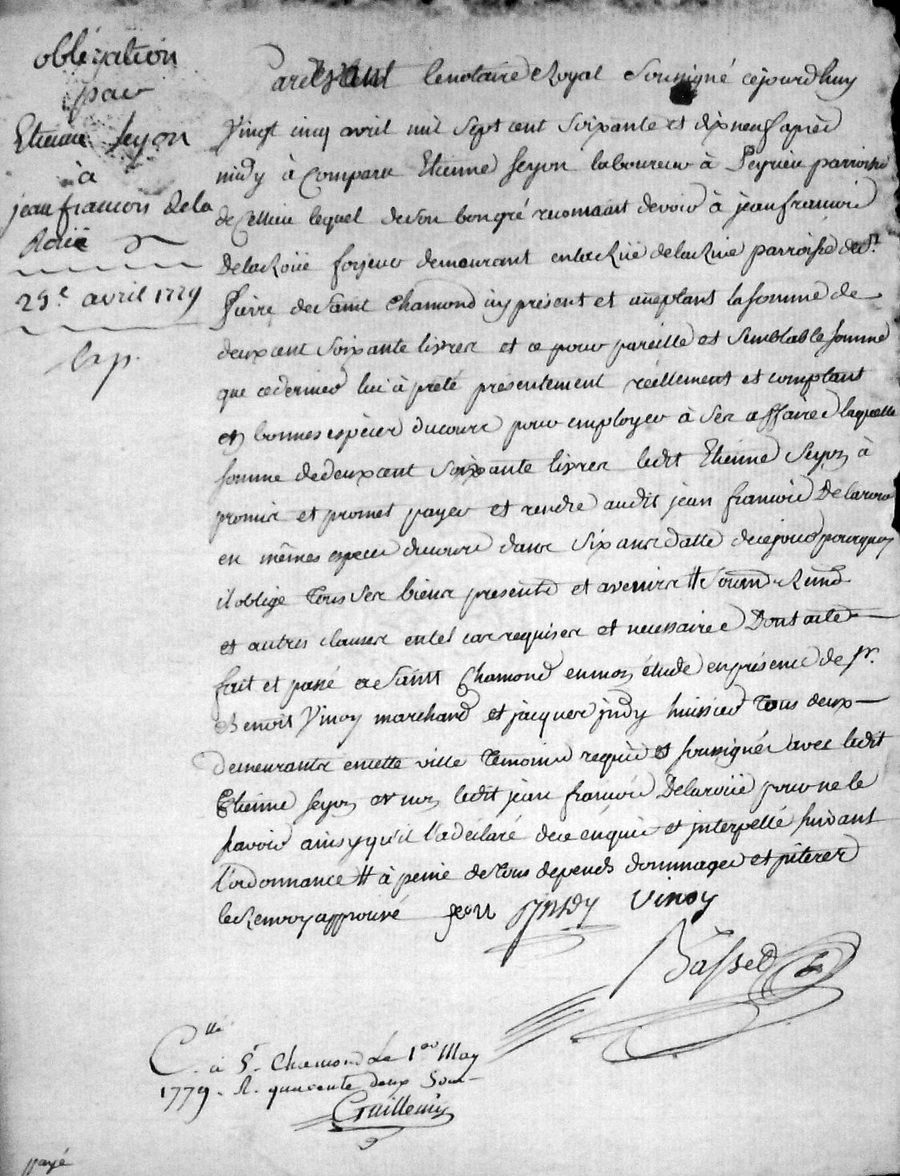 obligation
par
Etienne Seyon
à
jean francois dela
Roüe
25.e avril 1779
Exp.
Pardevant le notaire Royal soussigné cejourdhuy
vingt cinq avril mil sept cent soixante et dix neuf après
midy à comparu Etienne Seyon laboureur à Peyrieu parroisse
de Cellieu lequel de son bon gré reconnaît devoir à jean francois
Delaroüe demeurant en la Rüe de la Rive parroisse de st.
Pierre de Saint Chamond icy présent et acceptant la somme de
deux cent soixante livres et ce pour pareille et semblable somme
que ce dernier lui à prêté présentement réellement et comptant
en bonnes espèces du cours pour employer à ses affaires laquelle
somme de deux cent soixante livres ledit Etienne Seyon à
promis et promet payer et rendre audit jean francois Delaroue
en mêmes especes du cours dans six ans datte de ce jour pourquoy
il oblige tous ses biens presents et avenirs # Soum. Renon.
et autres clauses en tel cas requises et necessaires Dont acte
fait et passé à Saint Chamond en mon étude en présence de sr.
Benoit Vinoy marchand et jacques jindy huissier tous deux
demeurants en cette ville témoins requis et soussignés avec ledit
Etienne Seyon et non ledit jean francois Delaroüe pour ne le
savoir ainsy qu'il l'a déclaré de ce enquis et interpellé suivant
l'ordonnance # à peine de tous depends dommages et interets
le Renvoy approuvé seon jindy vinoy
Basset
C.llé à St. Chamond Le 1er May
1779. R. quarente deux Sous
Guillemin
payé